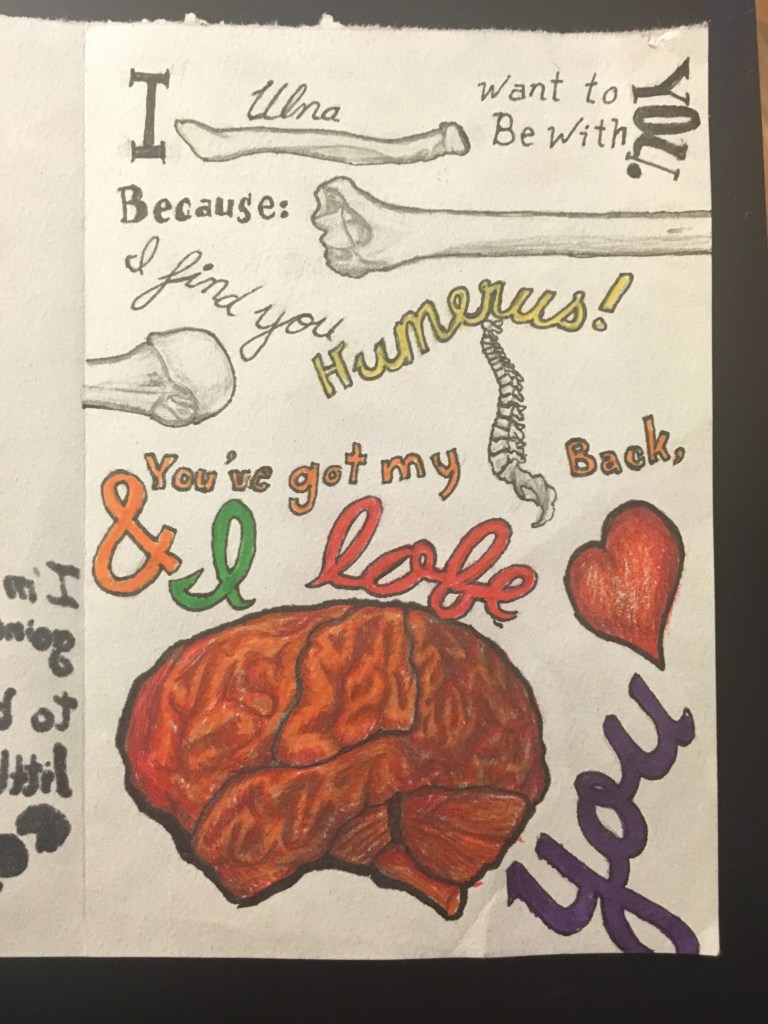 I Ulna want to
Be With YOU.
Because:
I find you
Humerus!
You've got my Back,
& I lobe
you
I'm
going
to b
littl